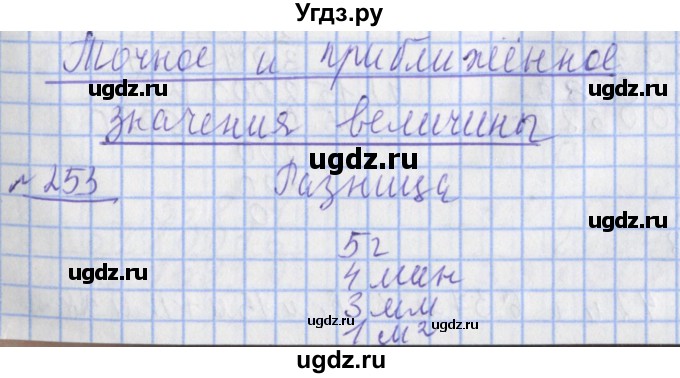 Угдз.ру
Точное и приближённое
ugdz.ru ugdz.ru
значения величины
ugdz.ru
№253 Разница
5г
ugdz.ru ugdz.ru
4 мин
3 мм
ugdz.ru ugdz.ru
1 м²
ugdz.ru